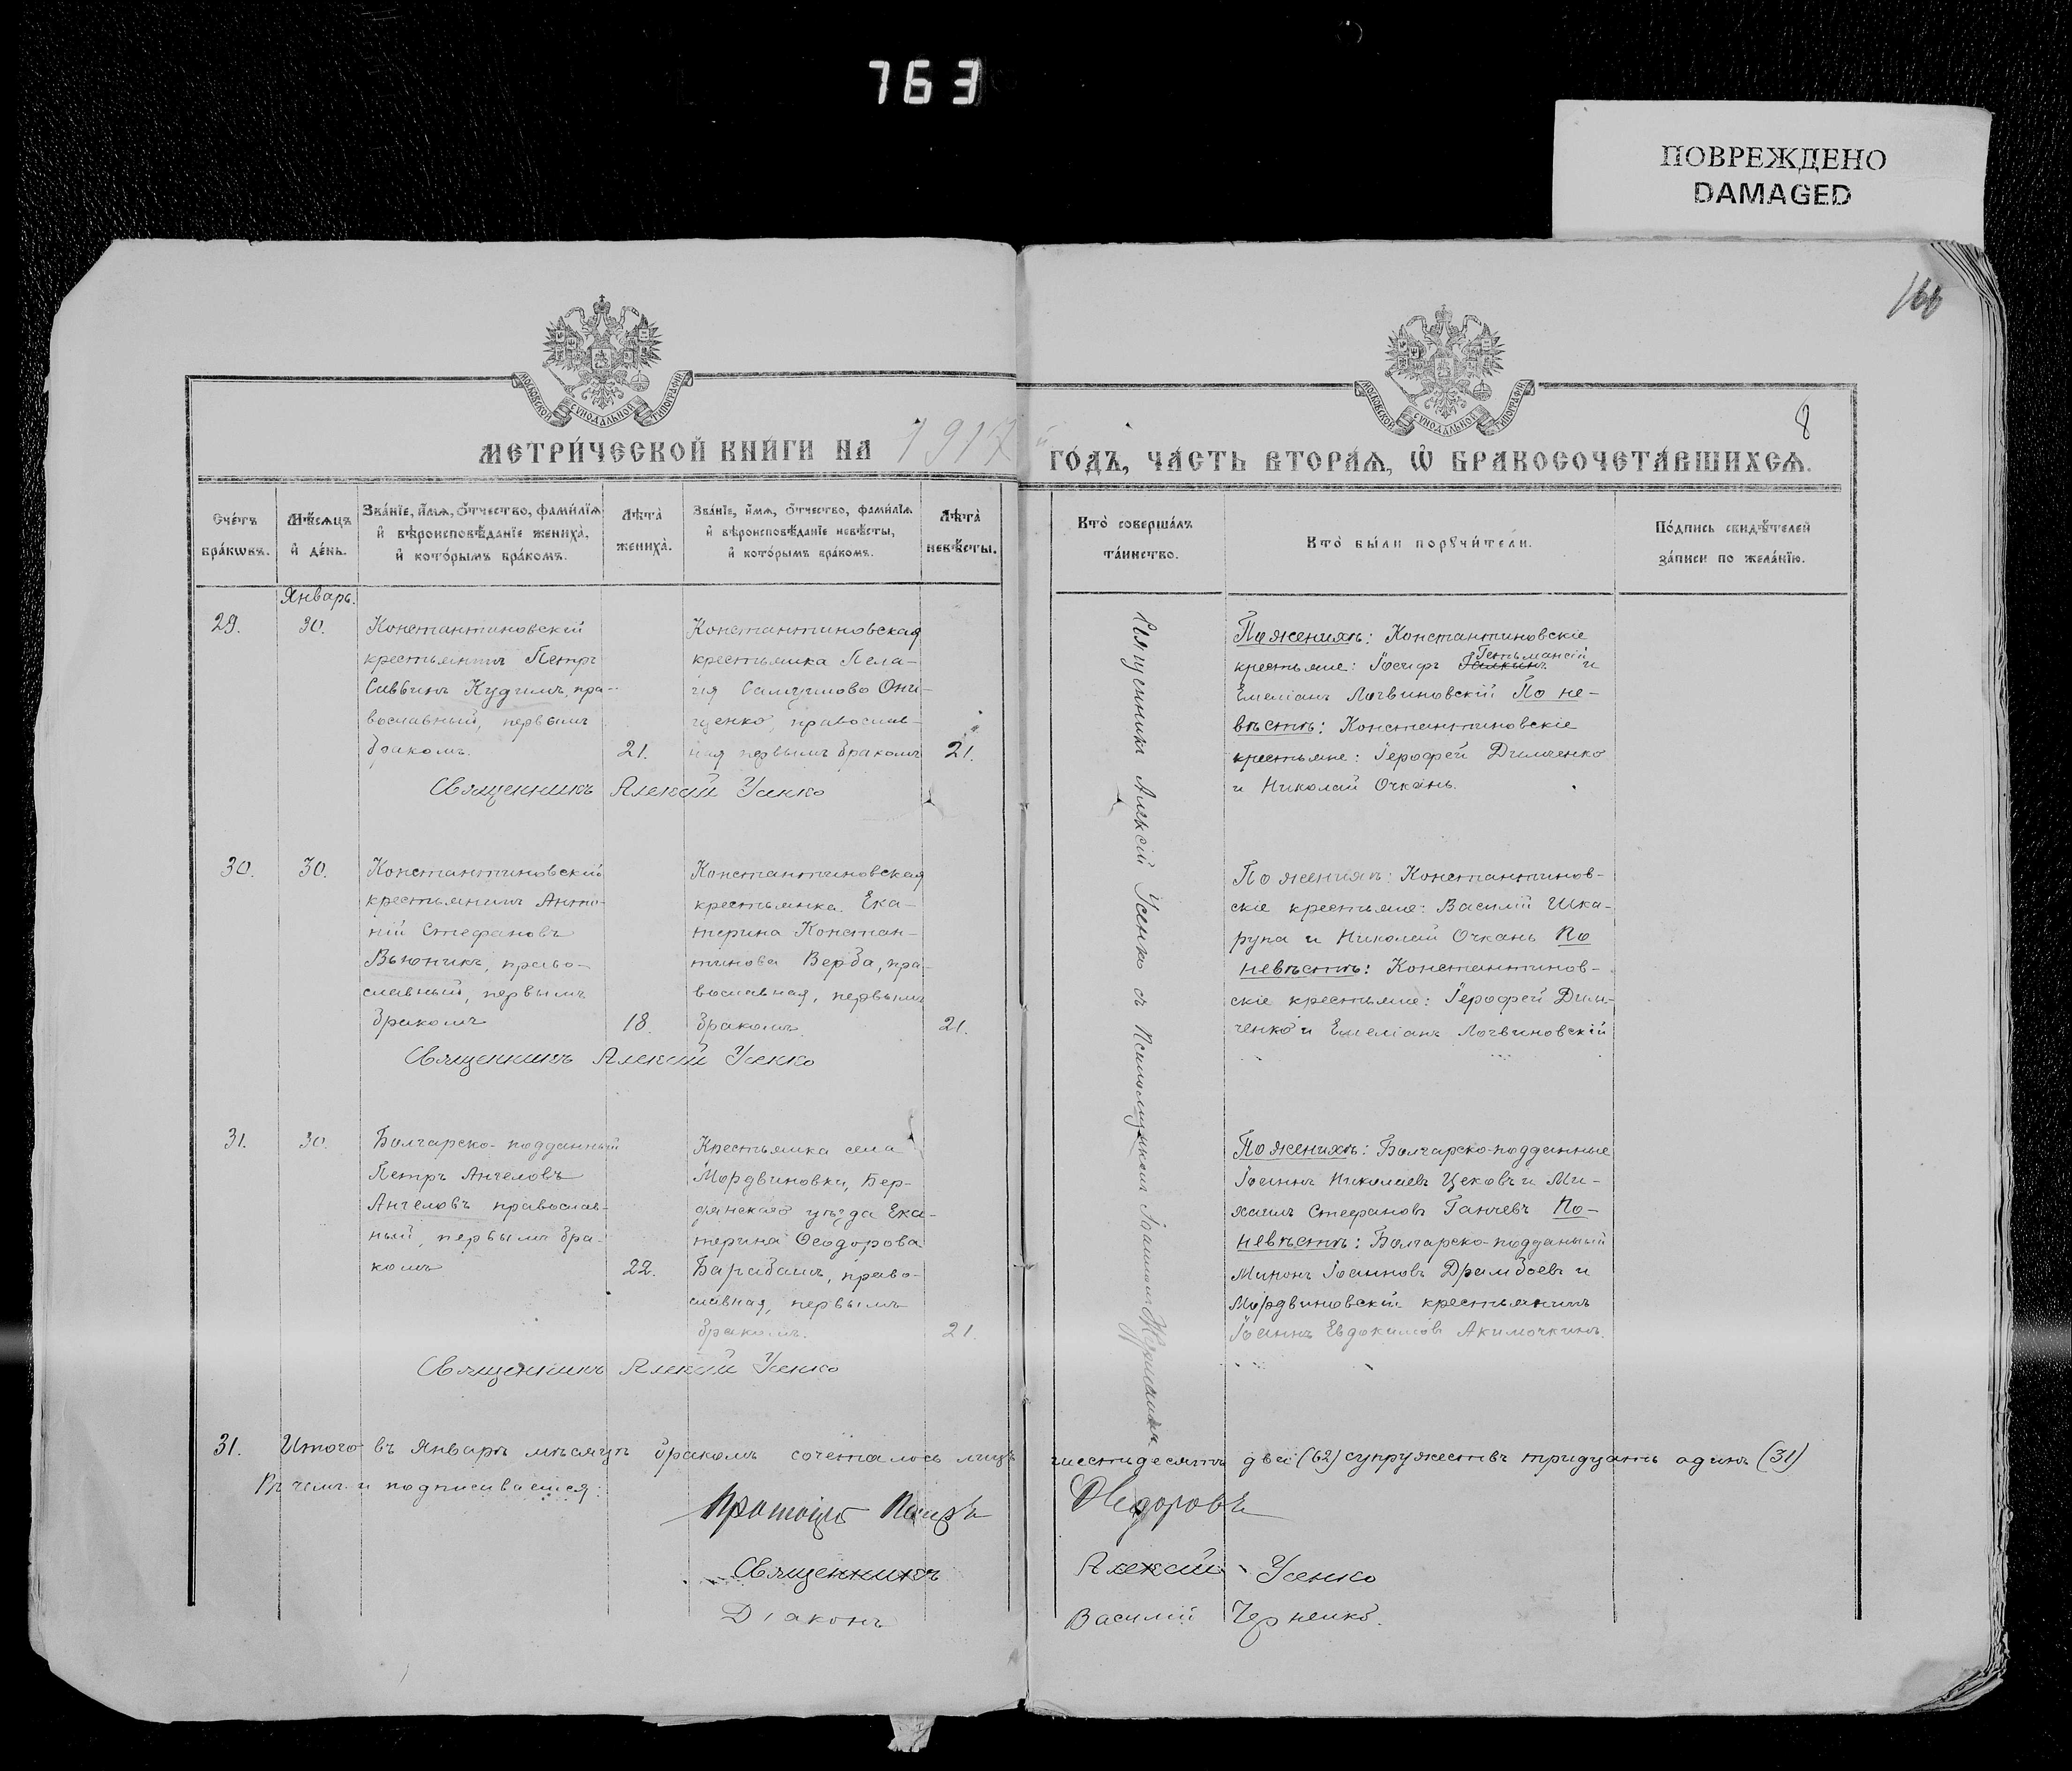 763
ПОВРЕЖДЕНО
DAMAGED
166
МОСКОВСКОЙ СѴНОДАЛЬНОЙ ТИПОГРАФІИ
МОСКОВСКОЙ СѴНОДАЛЬНОЙ ТИПОГРАФІИ
8
МЕТРИ́ЧЕСКОЙ КНИ́ГИ НА 1917 ГО́ДЪ, ЧА́СТЬ ВТОРА́Ѧ, Ѡ҆ БРАКОСОЧЕТА́ВШИХСѦ.
Сче́тъ
бра́кѡвъ.
Мѣ́сѧцъ
и҆ де́нь.
Зва́нїе, и҆́мѧ, ѻ҆́тчество, фами́лїѧ
и҆ вѣроисповѣ́данїе жениха̀,
и҆ кото́рымъ бра́комъ.
Лѣта̀
жениха̀.
Зва́нїе, и҆́мѧ, ѻ҆́тчество, фами́лїѧ
и҆ вѣроисповѣ́данїе невѣ́сты,
и҆ кото́рымъ бра́комъ.
Лѣта̀
невѣ́сты.
Кто̀ соверша́лъ
та́инство.
Кто̀ бы́ли порꙋчи́тели.
По́дпись свидѣ́телей
за́писи по жела́нїю.
Январь.
29.
30.
Константиновскій
крестьянинъ Петръ
Саввинъ Кудимъ, пра-
вославный, первымъ
бракомъ.
21.
Константиновская
крестьянка Пела-
гія Самуилова Они-
щенко, православ-
ная первымъ бракомъ
21.
Священникъ Алексій Усенко
Священникъ Алексій Усенко съ Псаломщикомъ Іоанномъ
По женихѣ: Константиновскіе
крестьяне: Іосифъ Гетьманскій и
Емеліанъ Логвиновскій По не-
вѣстѣ: Константиновскіе
крестьяне: Іерофей Димченко
и Николай Очкань.
30.
30.
Константиновскій
крестьянинъ Анто-
ній Стефановъ
Вьюникъ, право-
славный, первымъ
бракомъ
18.
Константиновская
крестьянка Ека-
терина Констан-
тинова Верба, пра-
вославная, первымъ
бракомъ.
21.
Священникъ Алексій Усенко
По женихѣ: Константинов-
скіе крестьяне: Василій Шка-
рупа и Николай Очкань По
невѣстѣ: Константинов-
скіе крестьяне: Іерофей Дим-
ченко и Емеліанъ Логвиновскій
31.
30.
Болгарско-подданный
Петръ Ангеловъ
Ангеловъ православ-
ный, первымъ бра-
комъ
22.
Крестьянка села
Мордвиновки, Бер-
дянскаго уѣзда Ека-
терина Ѳеодорова
Барабашъ, право-
славная, первымъ
бракомъ.
21.
Священникъ Алексій Усенко
По женихѣ: Болгарско-подданные
Іоаннъ Николаевъ Цековъ и Ми-
хаилъ Стефановъ Ганчевъ По-
невѣстѣ: Болгарско-подданный
Миронъ Іоанновъ Драмбоевъ и
Мордвиновскій крестьянинъ
Іоаннъ Евдокимовъ Акимочкинъ.
31. Итого въ Январѣ мѣсяцѣ бракомъ сочеталось лицъ шестьдесятъ два (62) супружествъ тридцать одинъ (31)
Въ чемъ и подписываемся:
Протоіерей Петръ Ѳедоровъ
Священникъ Алексій Усенко
Діаконъ Василій Черненко.